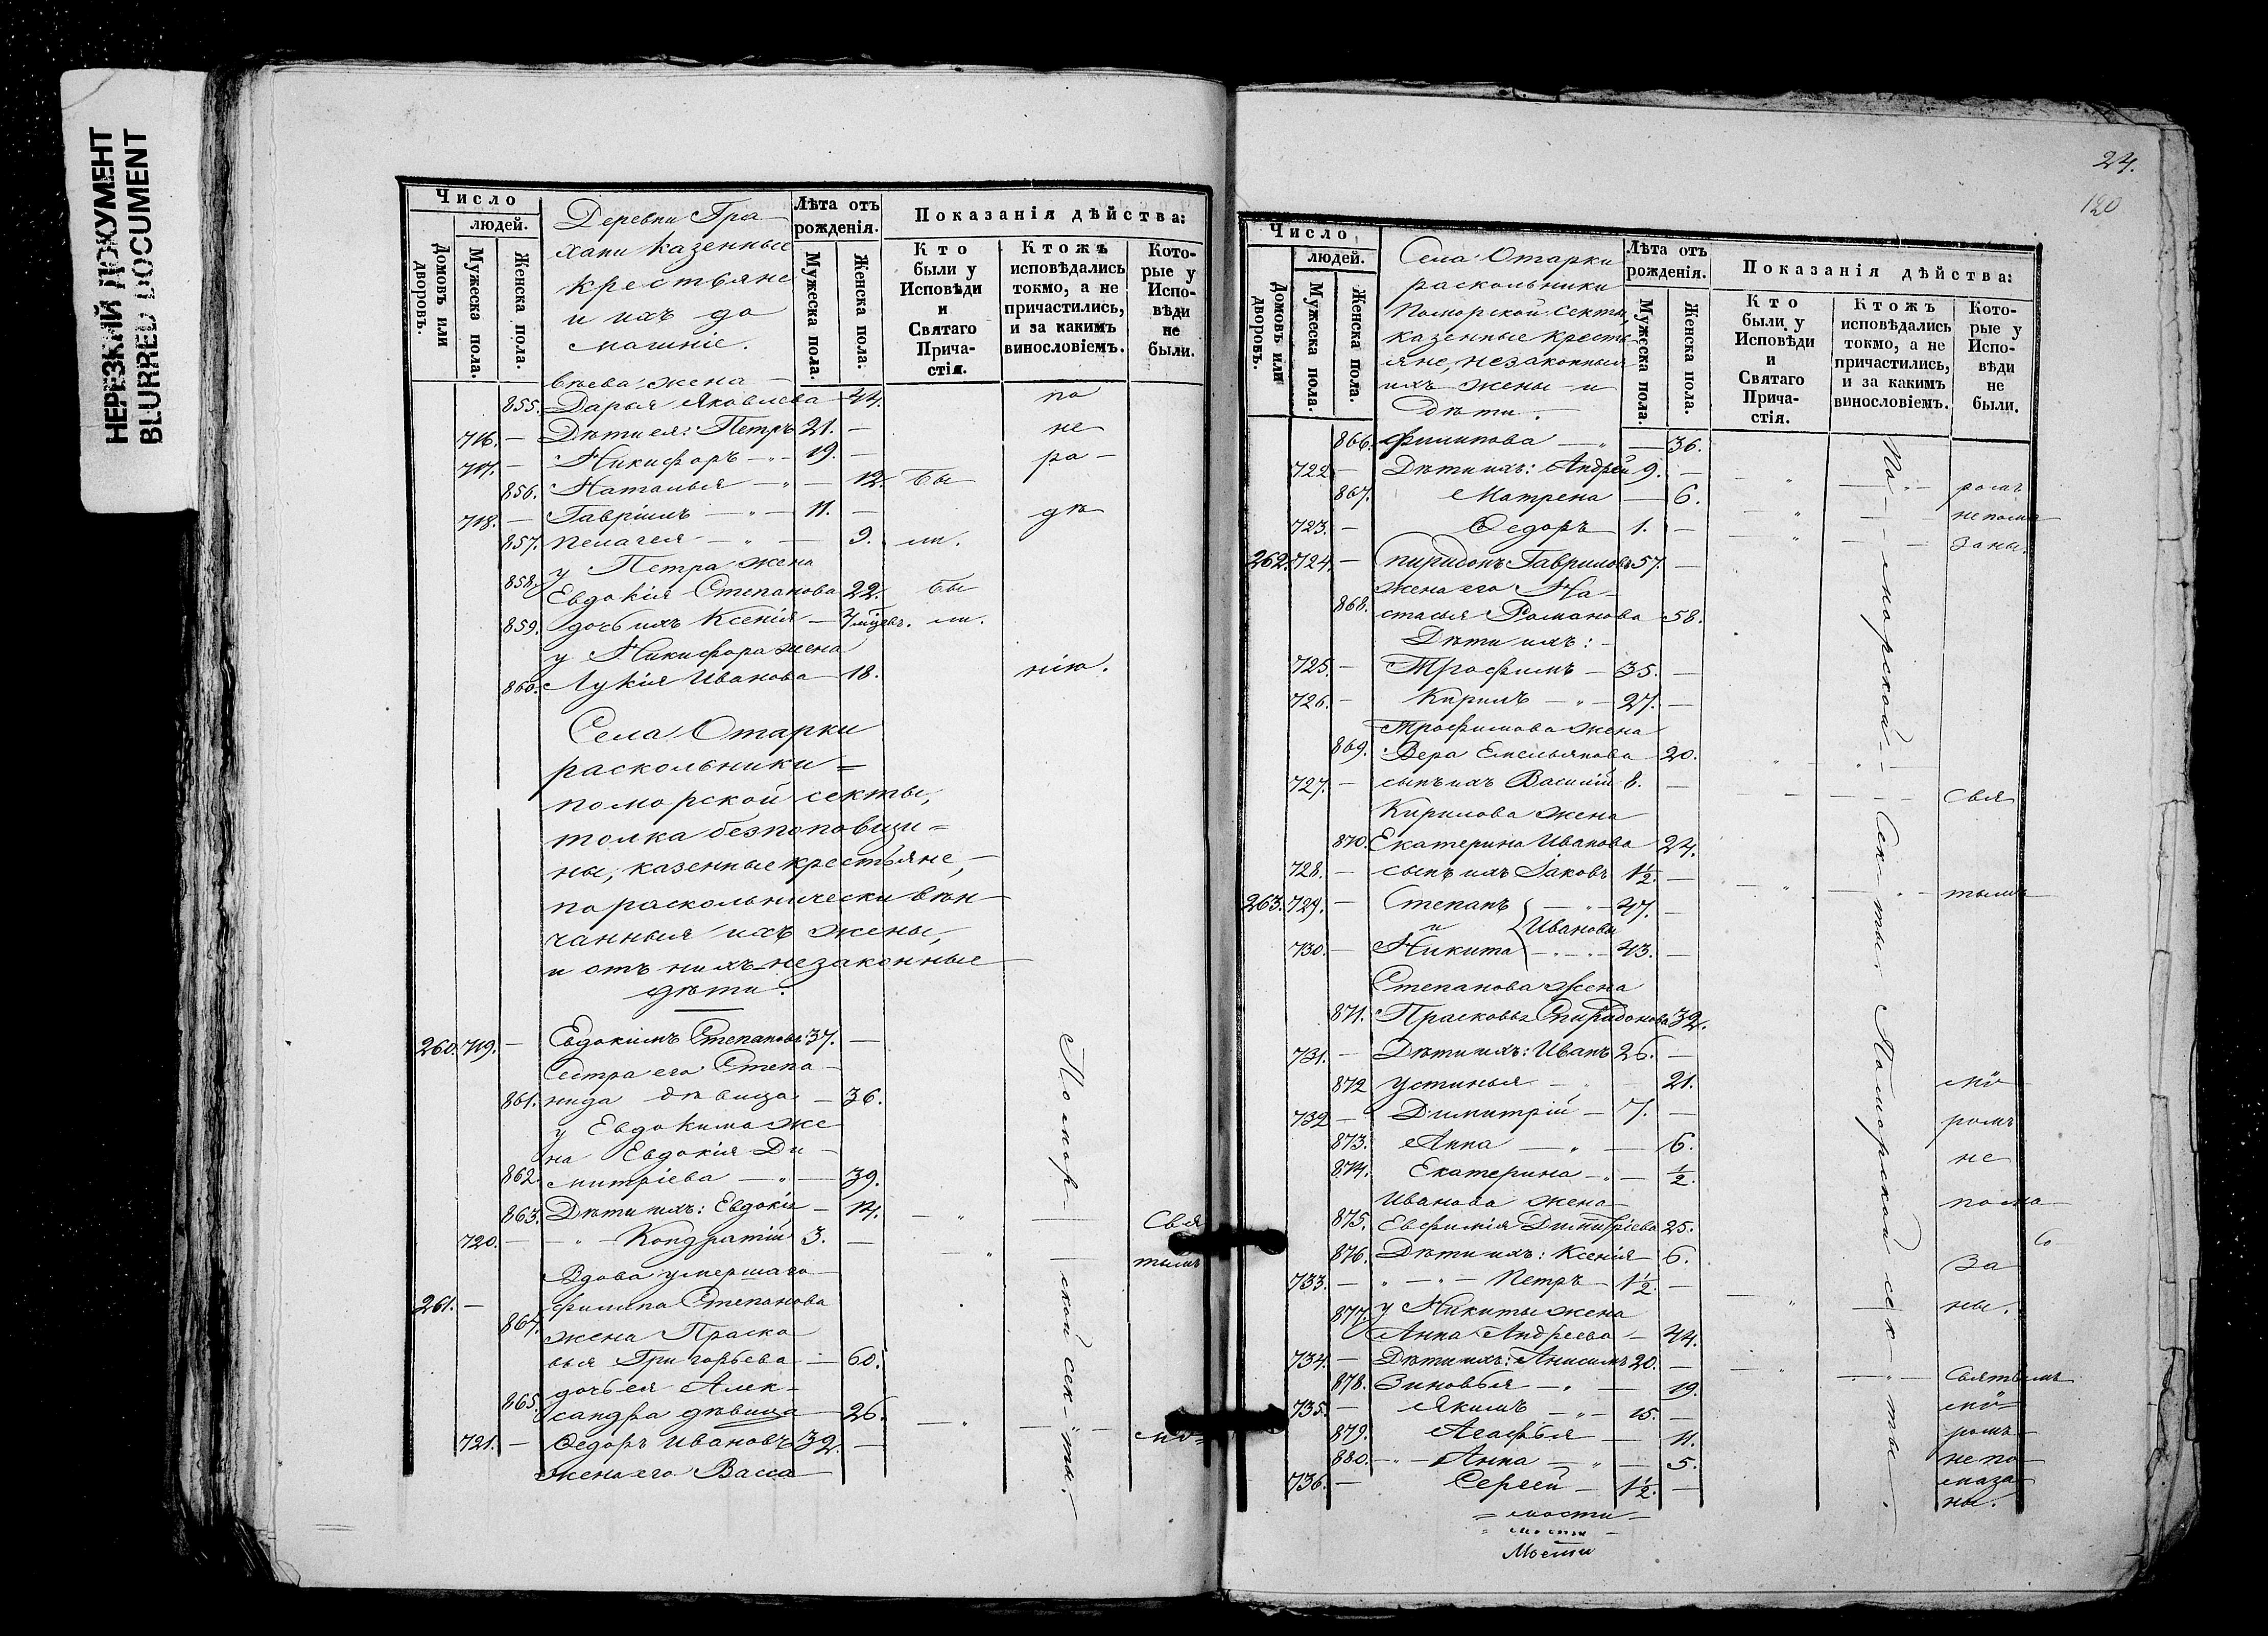 НЕРЕЗКИЙ ДОКУМЕНТ
BLURRED DOCUMENT
Число
людей.
Домовъ или дворовъ.
Мужеска пола.
Женска пола.
Деревни Гра-
хани казенные
крестьяне
и ихъ до
машніе.
Лѣта отъ рожденія.
Мужеска пола.
Женска пола.
Показанія дѣйства:
Кто были у Исповѣди и Святаго Причастія.
Ктожъ исповѣдались токмо, а не причастились, и за какимъ винословіемъ.
Которые у Исповѣди не были.
вѣева жена
855. Дарья Яковлева — 44. по
716. — Дѣти ея: Петръ 21. — не
717. — Никифоръ — 19. — ра-
856. Наталья — — 12. бы
718. — Гавріилъ — 11. — дѣ
857. Пелагея — — 9. ли.
858. у Петра жена
Евдокія Степанова 22. бы
859. дочь ихъ Ксенія — 7 мцевъ. ли.
у Никифора жена
860. Лукія Иванова — 18. нію.
Села Отарки
раскольники =
поморской секты,
толка безпоповщи =
ны, казенные крестьяне, —
по раскольнически вѣн —
чанныя ихъ жены,
и отъ нихъ незаконные
дѣти.
260. 719. — Евдокимъ Степановъ 37. —
Сестра его Степа —
861. нида дѣвица — 36.
у Евдокима же
на Евдокія Ди —
862. митріева — — 39.
863. Дѣти ихъ: Евдокія — 14. Свя
720. — Кондратій 3. —
тымъ
Вдова умершаго
261. — Филипа Степанова
864. жена Праско
вья Григорьева — 60.
дочь ея Алек-
865. сандра дѣвица — 26.
721. — Ѳедоръ Ивановъ 32. — мѵ-
жена его Васса
Помор- ской сек- ты.
24.
120
Число
людей.
Домовъ или дворовъ.
Мужеска пола.
Женска пола.
Села Отарки
раскольники
Поморской секты,
казенные кресть-
яне, незаконныя
ихъ жены и
дѣти.
Лѣта отъ рожденія.
Мужеска пола.
Женска пола.
Показанія дѣйства:
Кто были у Исповѣди и Святаго Причастія.
Ктожъ исповѣдались токмо, а не причастились, и за какимъ винословіемъ.
Которые у Исповѣди не были.
866. Филипова — — 36.
722. — Дѣти ихъ: Андрей 9. — ромъ
867. Матрена — 6. не пома
723. — Ѳедоръ 1. — заны.
262. 724. — Спиридонъ Гавриловъ 57. —
жена его На-
868. стасья Романова 58.
Дѣти ихъ: -
725. — Трофимъ — 35. —
726. — Кирилъ — 27. —
Трофимова жена
869. Вера Емельянова 20.
727. — сынъ ихъ Василій 8. — Свя
Кирилова жена
870. Екатерина Иванова 24.
728. — сынъ ихъ Іаковъ 1½. — тымъ
263. 729. — Степанъ — 47. —
и Ивановы
730. — Никита — 43. —
Степанова жена
871. Прасковья Спиридонова 32.
731. — Дѣти ихъ: Иванъ 26. —
872 Устинья — — 21. мѵ
732 — Димитрій — 7. — ромъ
873. Анна — — 6. не
874. Екатерина — — ½.
Иванова жена — пома
875. Евфимія Димитріева 25.
876. Дѣти ихъ: Ксенія — 6. За
733. — Петръ — 1½. —
877. у Никиты жена ны.
Анна Андреева — 44.
734. — Дѣти ихъ: Анисимъ 20. — Святымъ
878. Зиновья — — 19.
735. — Якимъ — 15. — мѵ-
879. Агафья — 11. ромъ
880. Анна — — 5. не по
736. — Сергей — 1½. — маза
ны.
По- морской Сек- ты. Поморской сек- ты.
= мости —